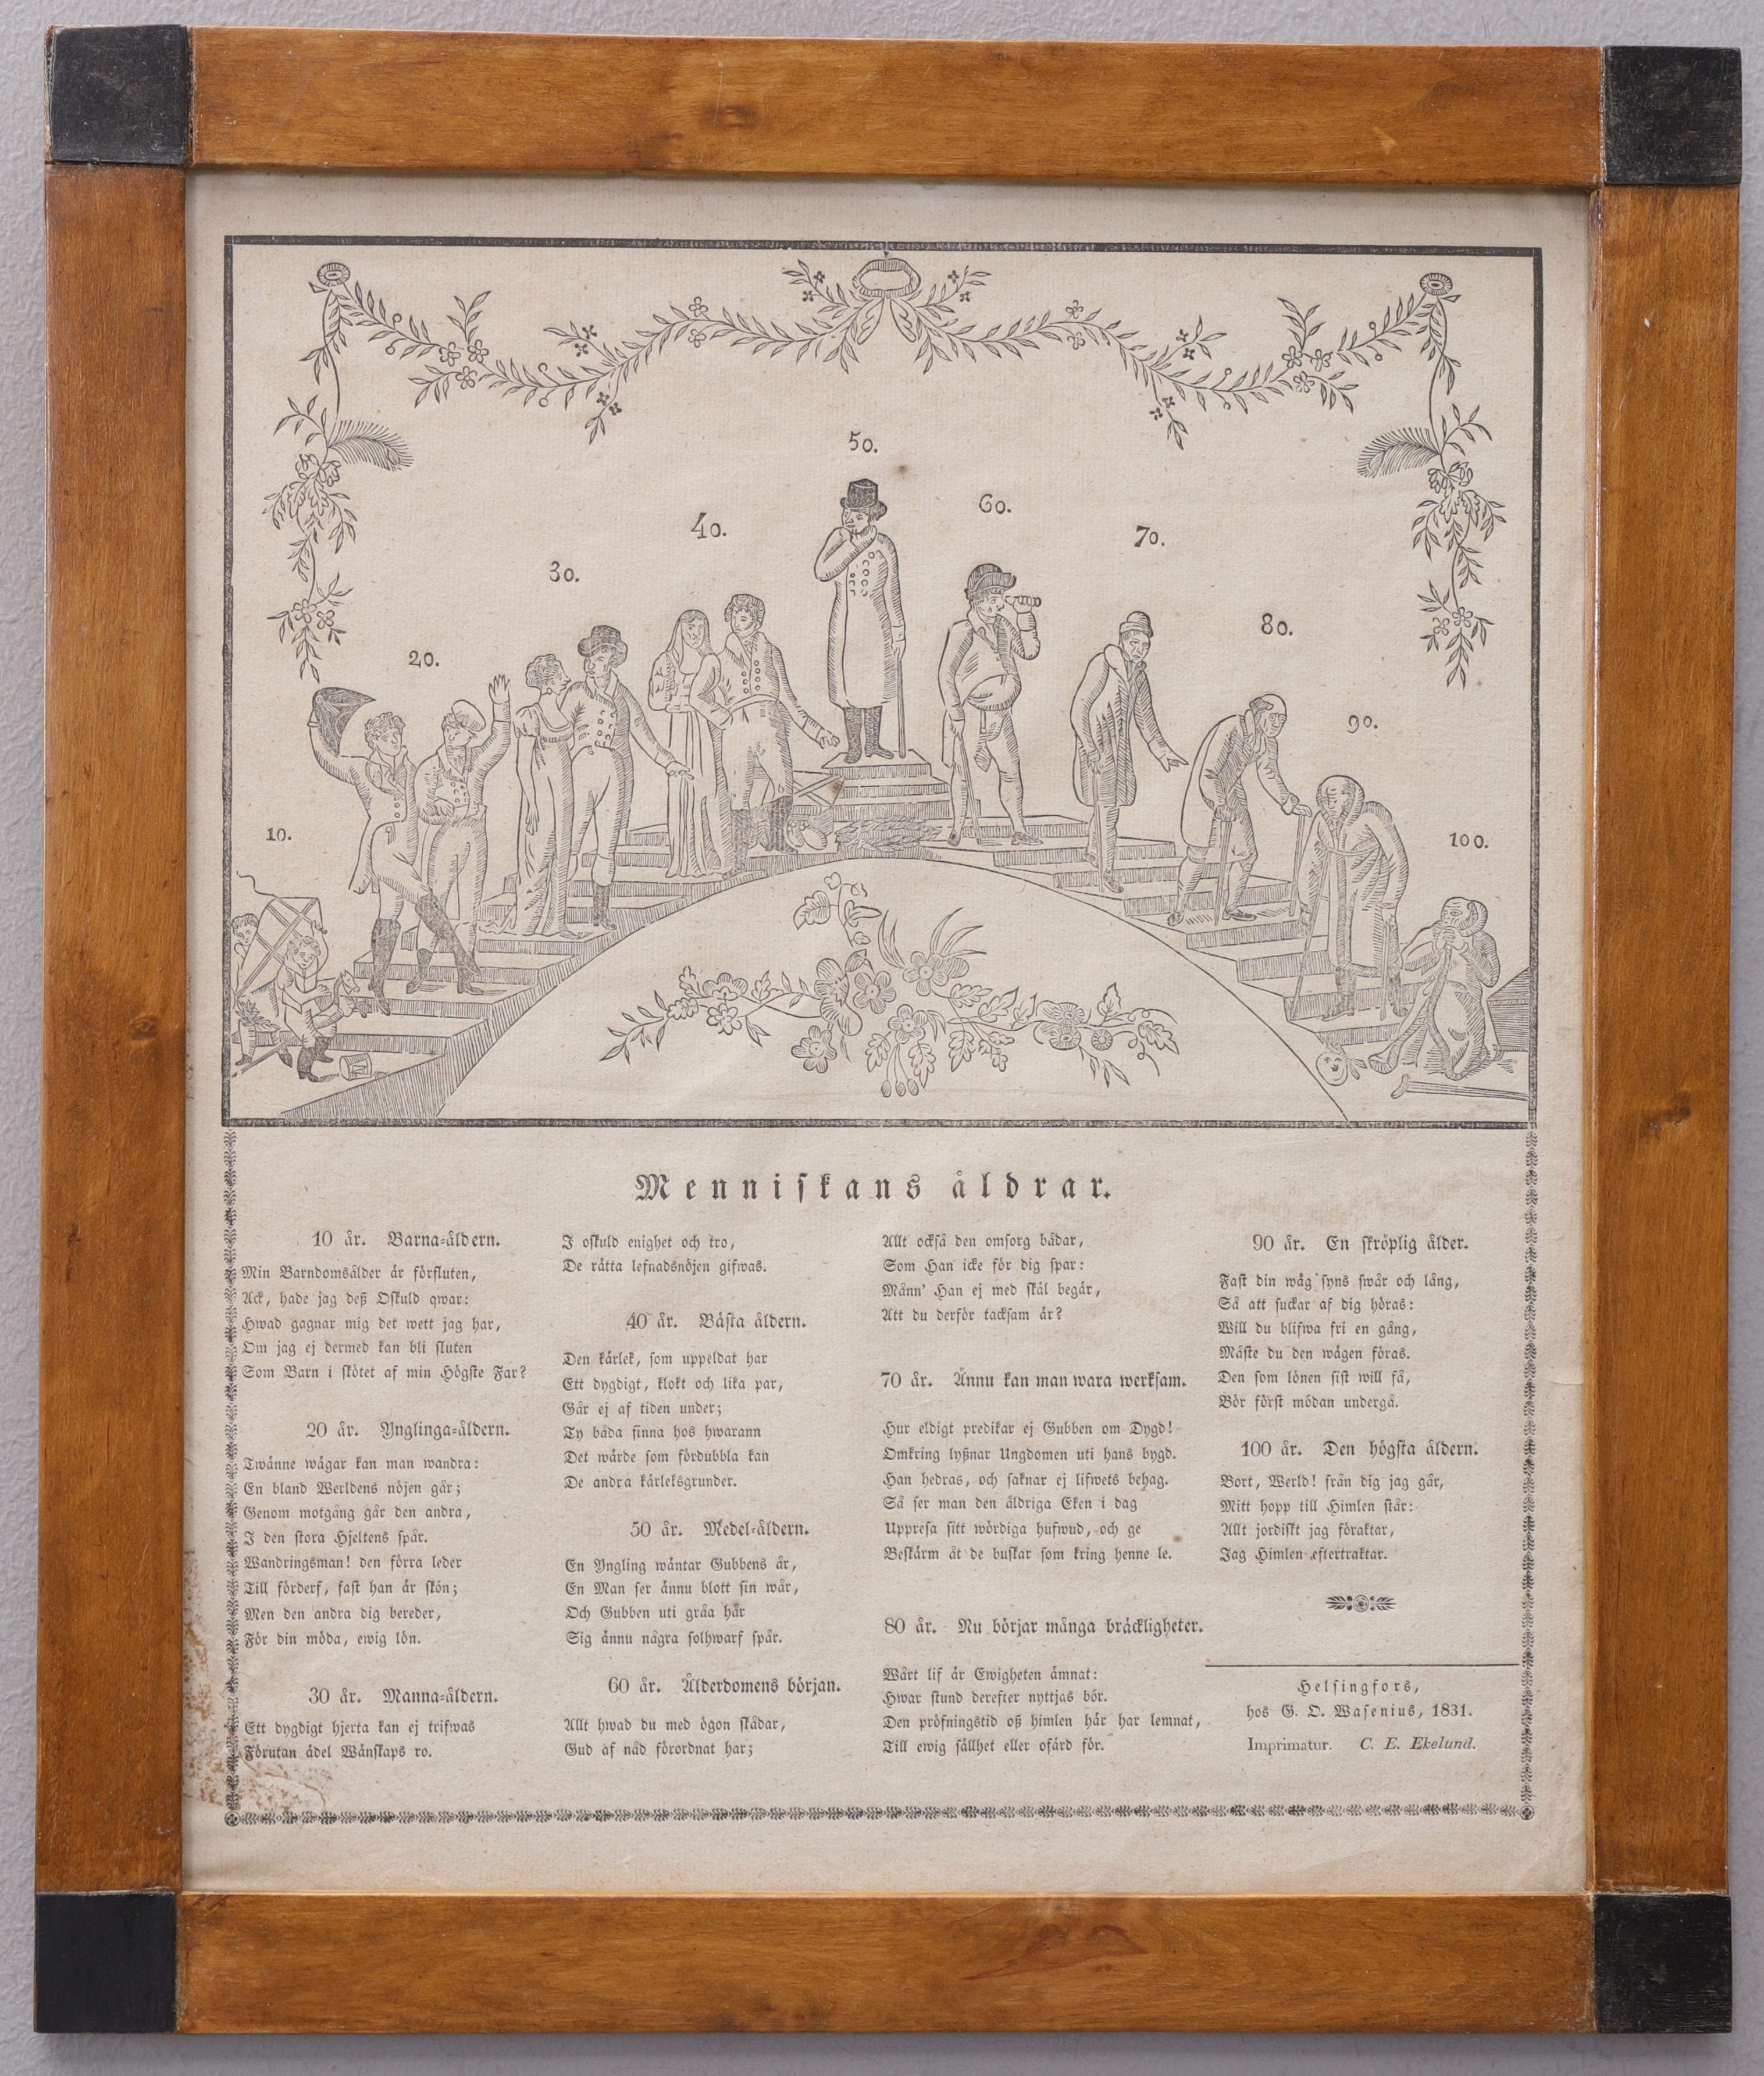 10.
20.
30.
40.
50.
60.
70.
80.
90.
100.
Menniskans åldrar.
10 år. Barna-åldern.
Min Barndomsålder är förfluten,
Ack, hade jag deß Oskuld qwar:
Hwad gagnar mig det wett jag har,
Om jag ej dermed kan bli sluten
Som Barn i skötet af min Högste Far?
20 år. Ynglinga-åldern.
Twänne wägar kan man wandra:
En bland Werldens nöjen går;
Genom motgång går den andra,
I den stora Hjeltens spår.
Wandringsman! den förra leder
Till förderf, fast han är skön;
Men den andra dig bereder,
För din möda, ewig lön.
30 år. Manna-åldern.
Ett dygdigt hjerta kan ej trifwas
Förutan ädel Wänskaps ro.
I oskuld enighet och tro,
De rätta lefnadsnöjen gifwas.
40 år. Bästa åldern.
Den kärlek, som uppeldat har
Ett dygdigt, klokt och lika par,
Går ej af tiden under;
Ty båda finna hos hwarann
Det wärde som fördubbla kan
De andra kärleksgrunder.
50 år. Medel-åldern.
En Yngling wäntar Gubbens år,
En Man ser ännu blott sin wår,
Och Gubben uti gråa hår
Sig ännu några solhwarf spår.
60 år. Ålderdomens början.
Allt hwad du med ögon skådar,
Gud af nåd förordnat har;
Allt också den omsorg bådar,
Som Han icke för dig spar:
Månn' Han ej med skäl begär,
Att du derför tacksam är?
70 år. Ännu kan man wara werksam.
Hur eldigt predikar ej Gubben om Dygd!
Omkring lyßnar Ungdomen uti hans bygd.
Han hedras, och saknar ej lifwets behag.
Så ser man den åldriga Eken i dag
Uppresa sitt wördiga hufwud, och ge
Beskärm åt de buskar som kring henne le.
80 år. Nu börjar många bräckligheter.
Wårt lif är Ewigheten ämnat:
Hwar stund derefter nyttjas bör.
Den pröfningstid oß himlen här har lemnat,
Till ewig sällhet eller ofärd för.
90 år. En skröplig ålder.
Fast din wäg syns swår och lång,
Så att suckar af dig höras:
Will du blifwa fri en gång,
Måste du den wägen föras.
Den som lönen sist will få,
Bör först mödan undergå.
100 år. Den högsta åldern.
Bort, Werld! från dig jag går,
Mitt hopp till Himlen står:
Allt jordiskt jag föraktar,
Jag Himlen eftertraktar.
Helsingfors,
hos G. O. Wasenius, 1831.
Imprimatur. C. E. Ekelund.